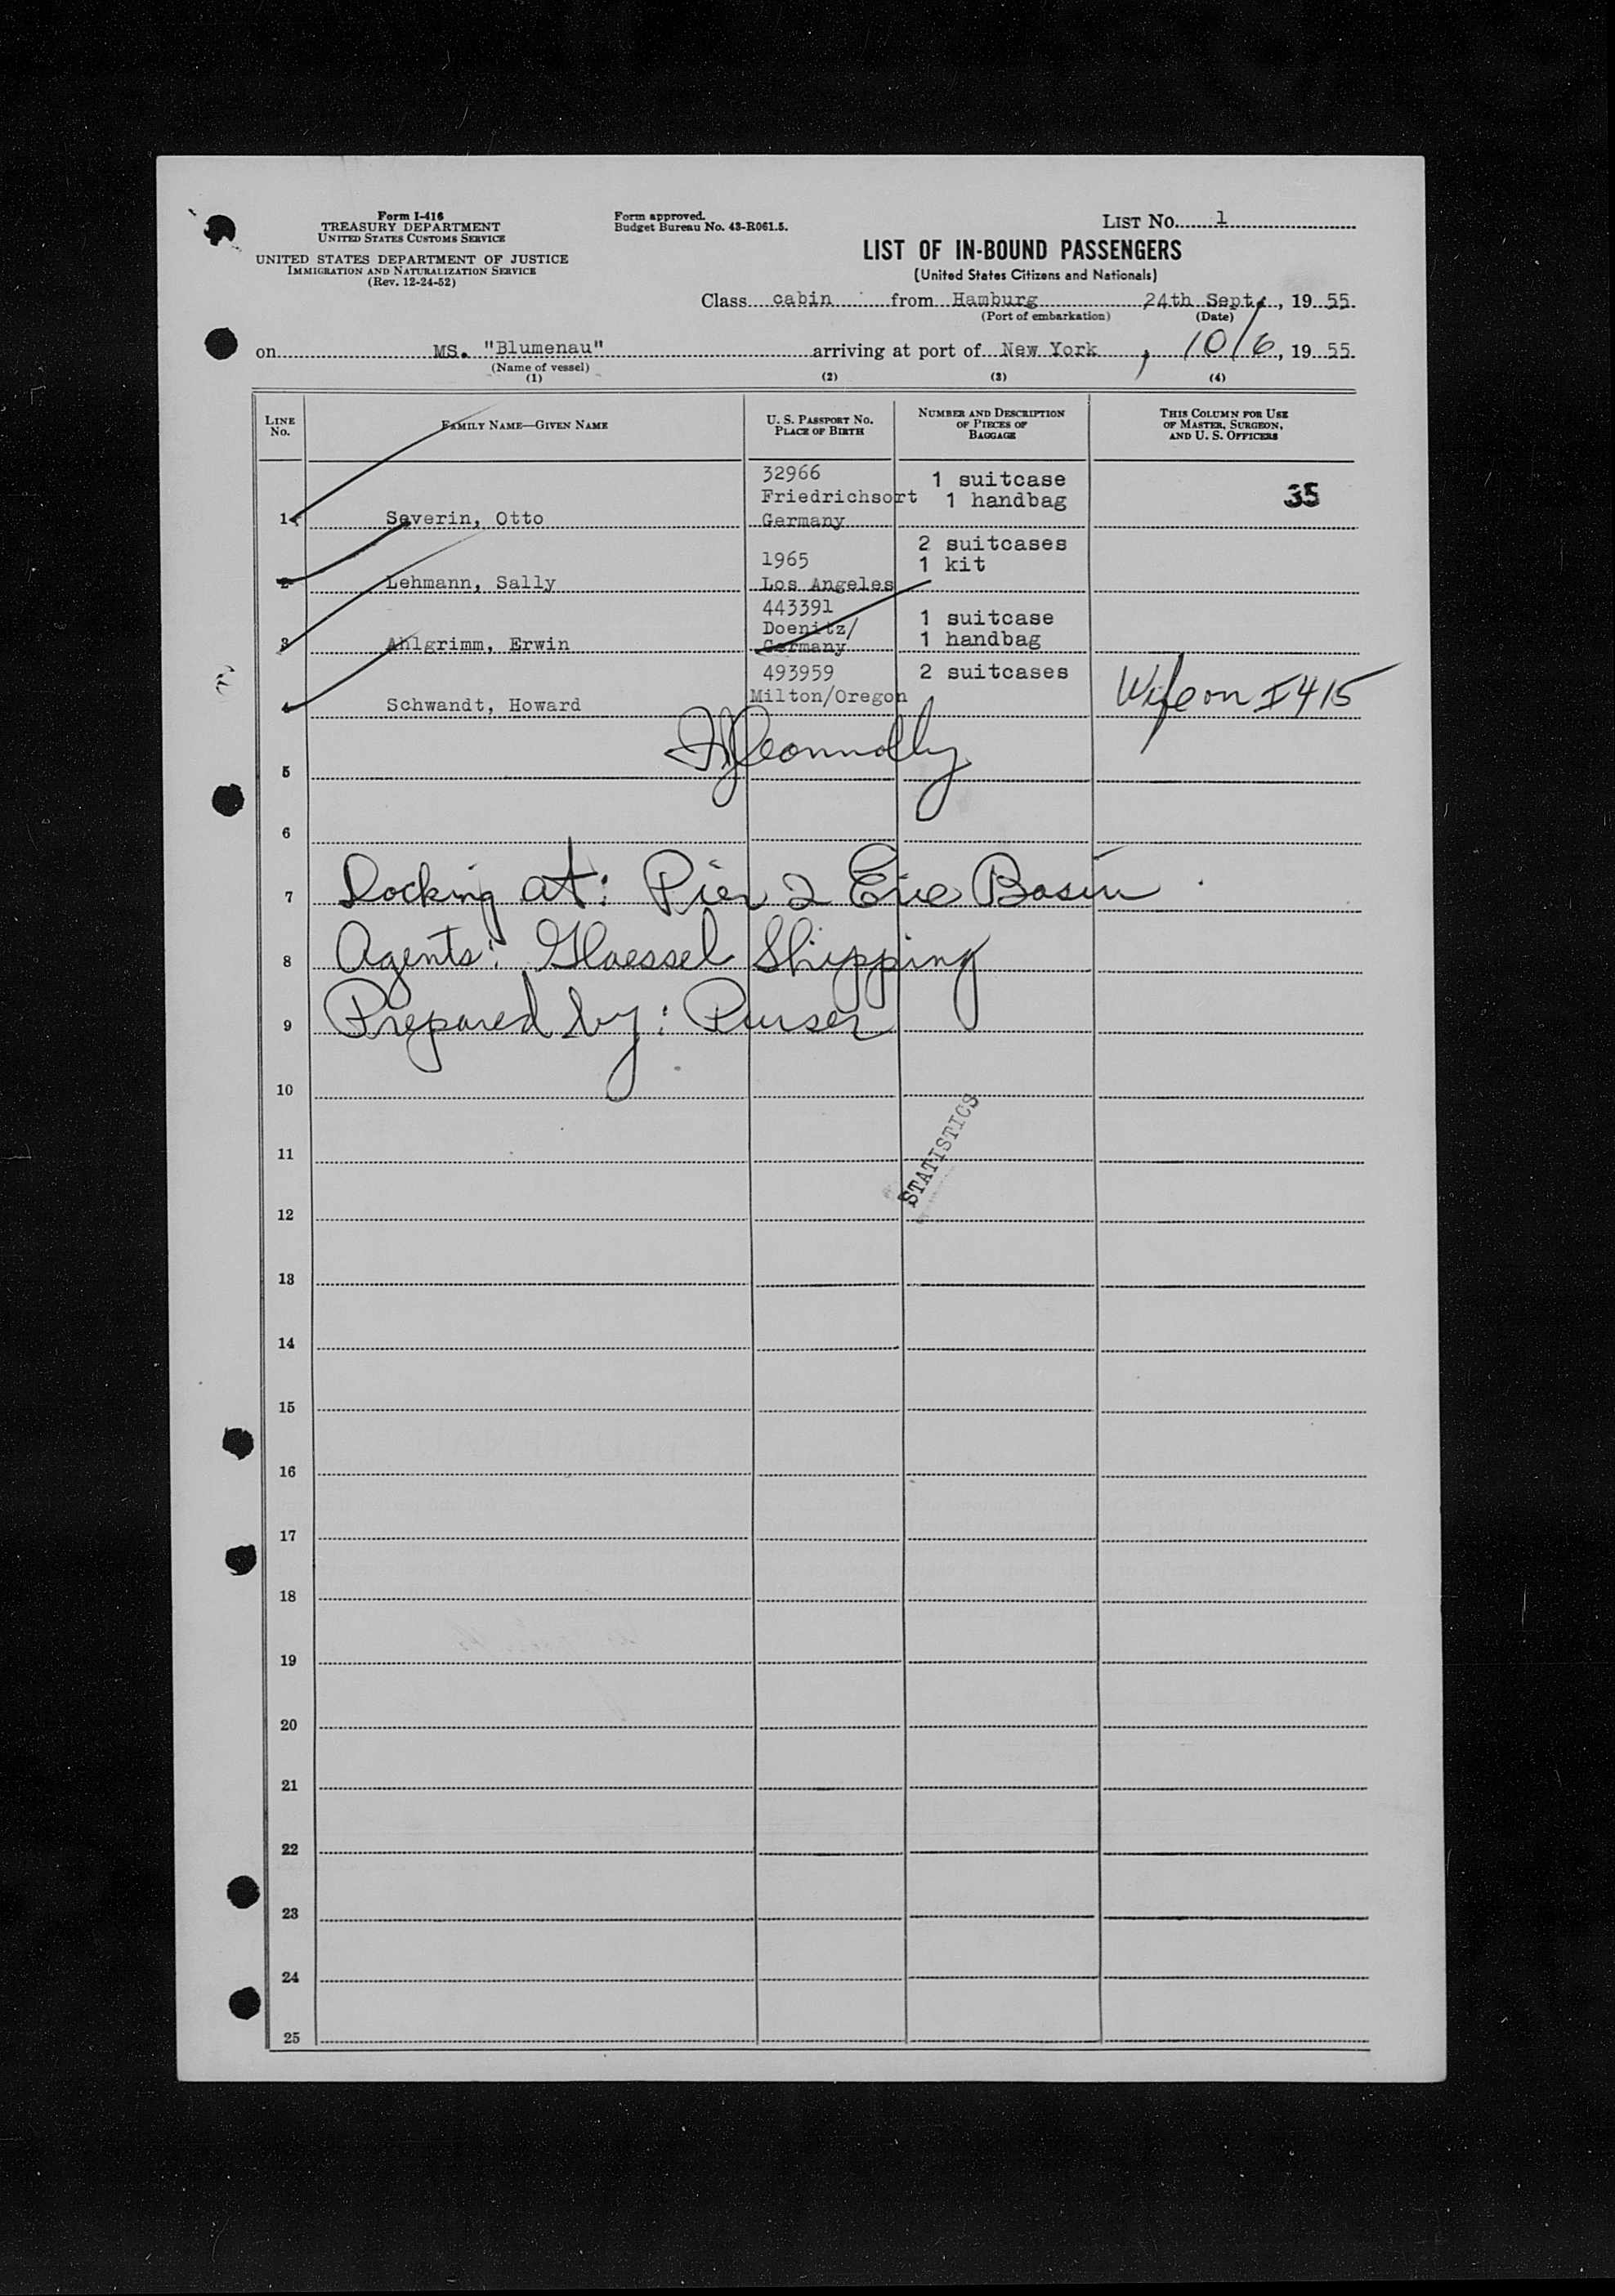 Form I-416
TREASURY DEPARTMENT
UNITED STATES CUSTOMS SERVICE
UNITED STATES DEPARTMENT OF JUSTICE
IMMIGRATION AND NATURALIZATION SERVICE
(Rev. 12-24-52)
Form approved.
Budget Bureau No. 43-R061.5.
LIST No. 1
LIST OF IN-BOUND PASSENGERS
(United States Citizens and Nationals)
Class cabin from Hamburg 24th Sept., 1955
(Port of embarkation) (Date)
on MS. "Blumenau" arriving at port of New York, 10/6, 1955
(Name of vessel)
(1) (2) (3) (4)
LINE No. FAMILY NAME—GIVEN NAME U. S. PASSPORT No. PLACE OF BIRTH NUMBER AND DESCRIPTION OF PIECES OF BAGGAGE THIS COLUMN FOR USE OF MASTER, SURGEON, AND U. S. OFFICERS
32966 1 suitcase 35
Friedrichsort 1 handbag
1 Severin, Otto Germany
2 suitcases
1965 1 kit
2 Lehmann, Sally Los Angeles
443391 1 suitcase
Doenitz/ 1 handbag
3 Ahlgrimm, Erwin Germany
493959 2 suitcases
4 Schwandt, Howard Milton/Oregon Wife on I 415
Connolly
5
6
7 Docking at: Pier 2 Erie Basin
8 Agents: Glaessel Shipping
9 Prepared by: Purser
10
STATISTICS
11
12
13
14
15
16
17
18
19
20
21
22
23
24
25